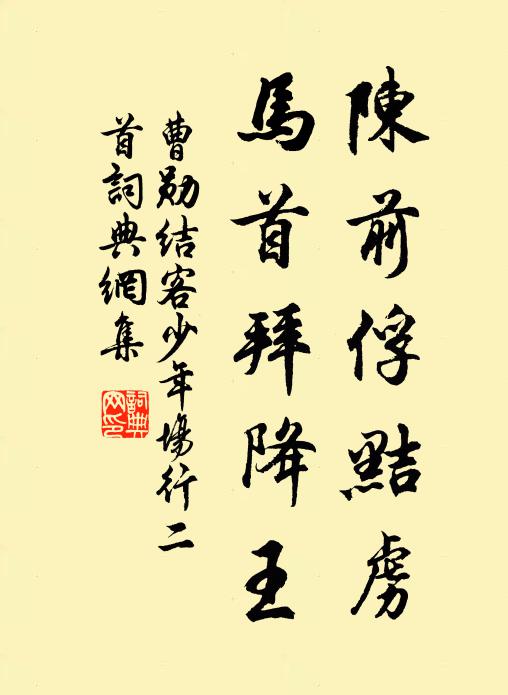 陳前俘黠虜
馬首拜降王
曹勛結客少年場行二
首詞典網集
詞典
网印